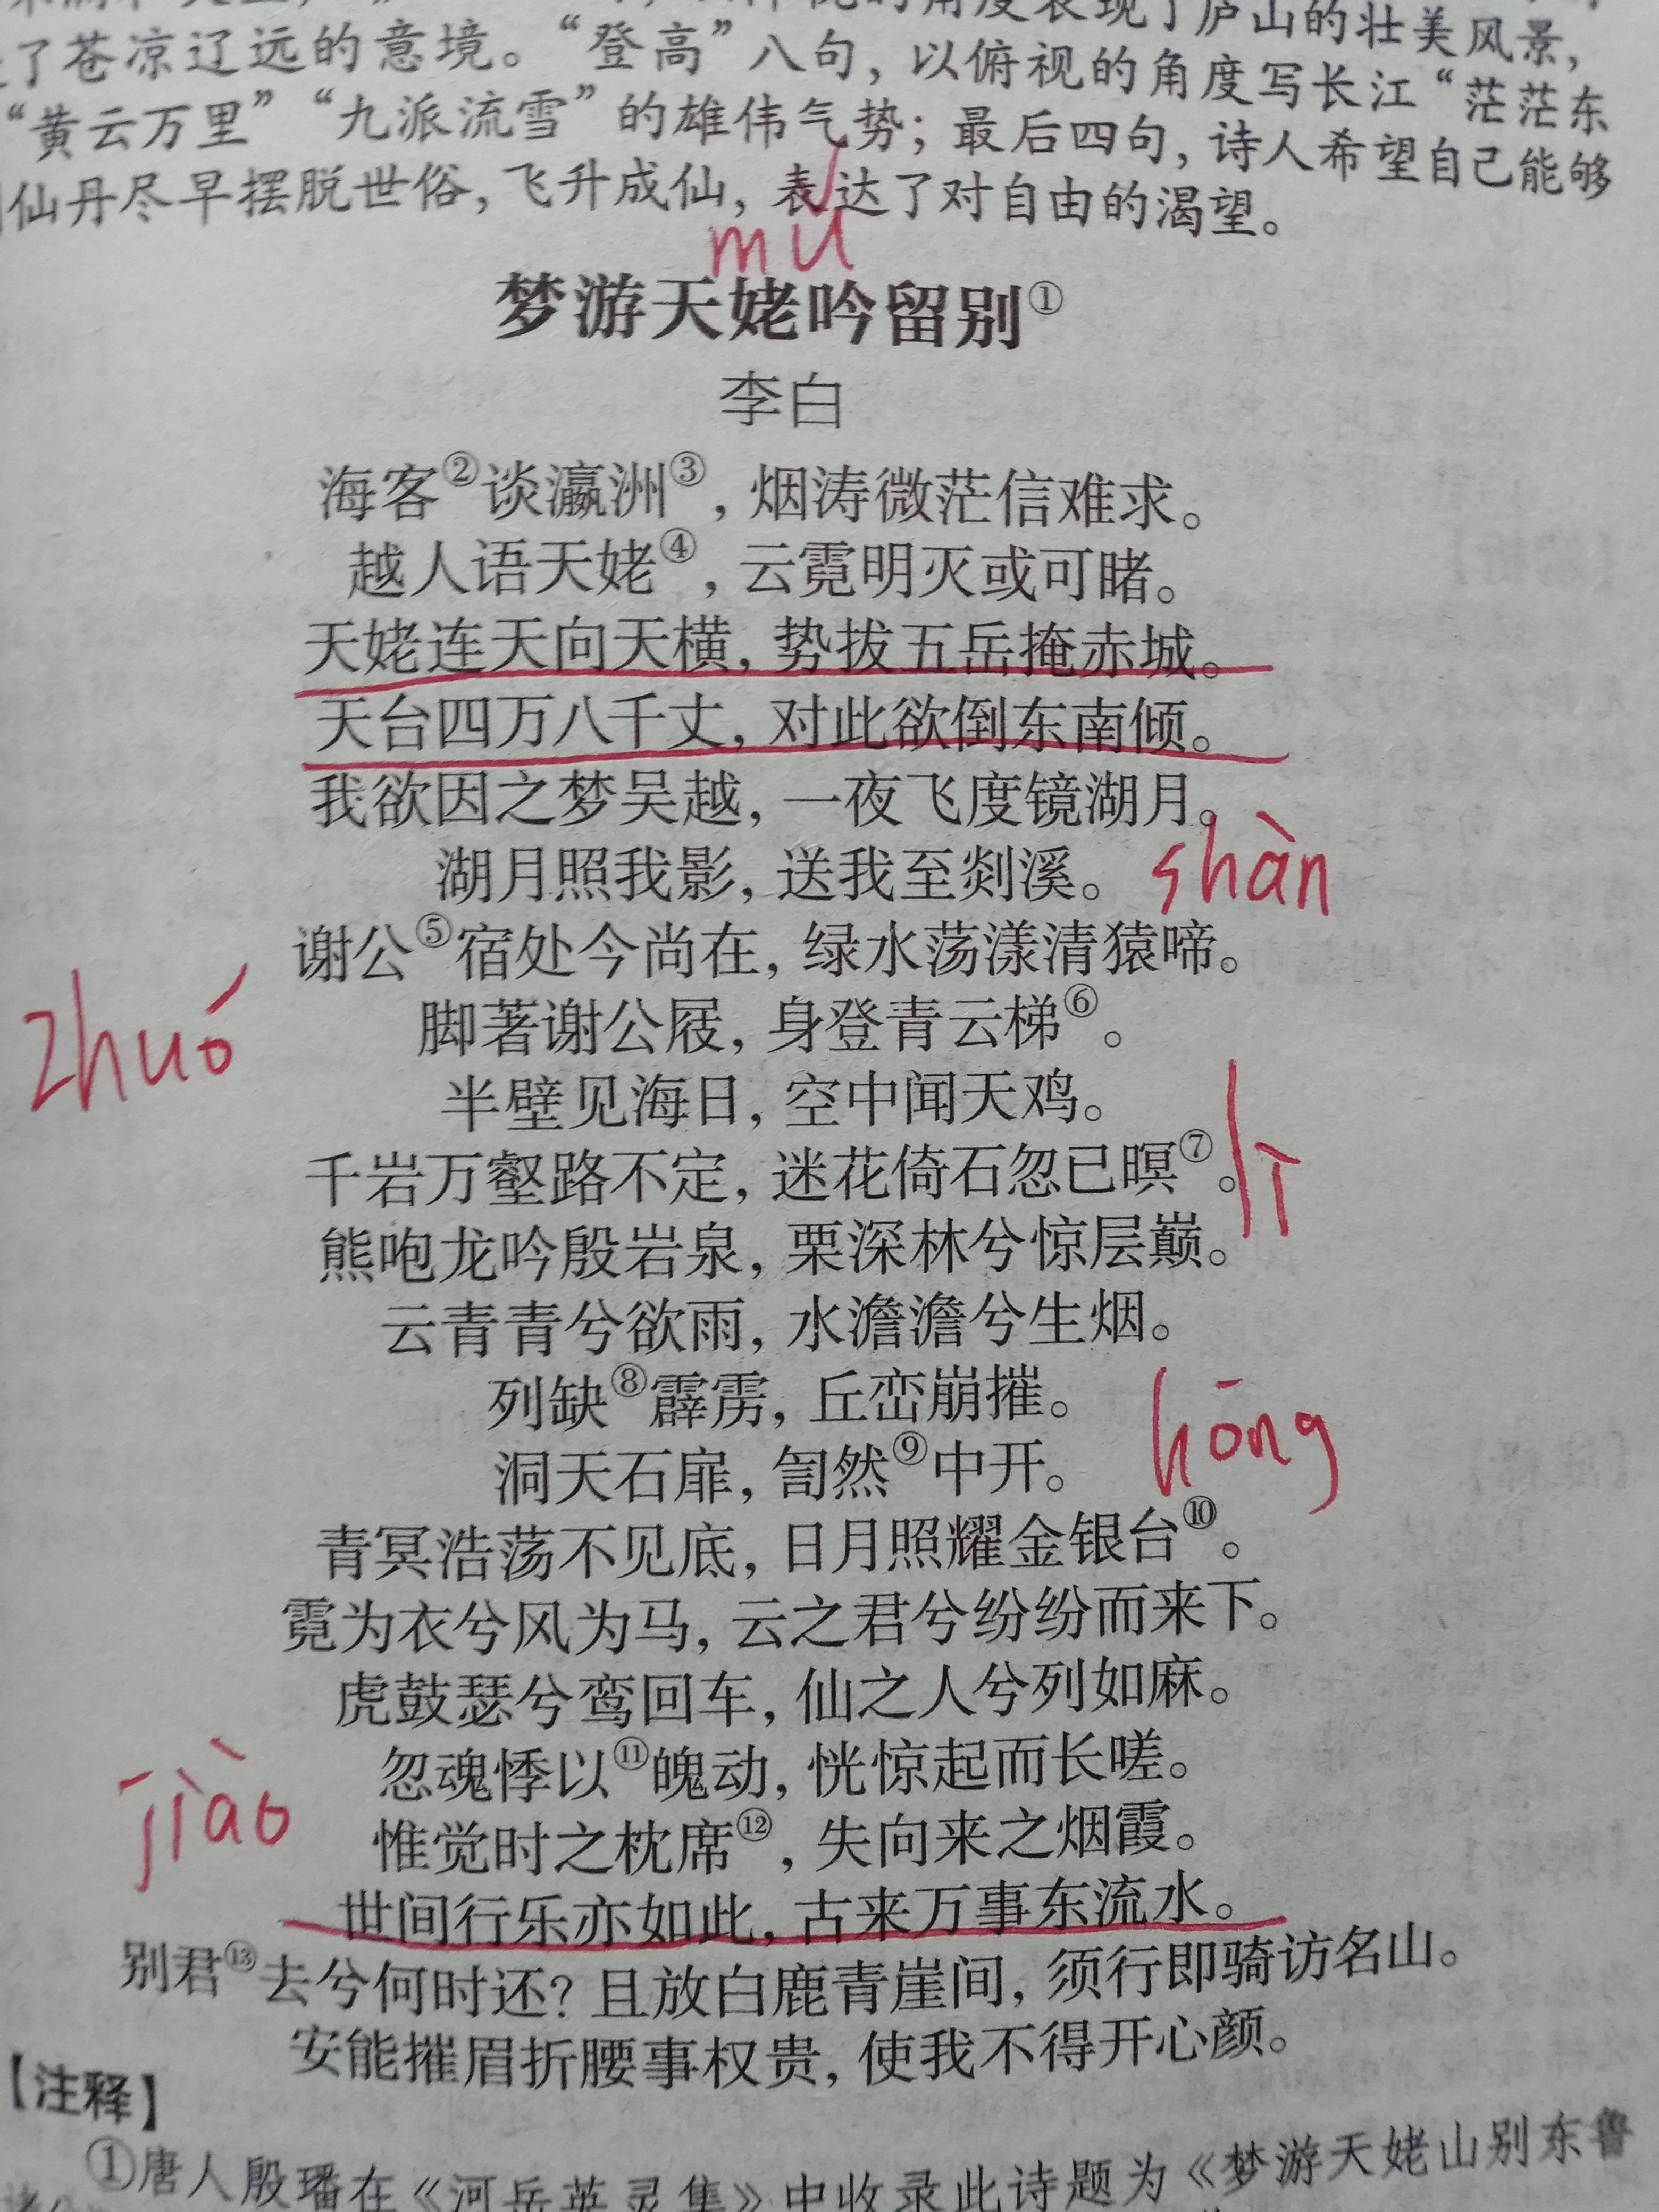 的角度表现了庐山的壮美风景，
了苍凉辽远的意境。“登高”八句，以俯视的角度写长江“茫茫东
“黄云万里”“九派流雪”的雄伟气势；最后四句，诗人希望自己能够
仙丹尽早摆脱世俗，飞升成仙，表达了对自由的渴望。
mǔ
梦游天姥吟留别①
李白
海客②谈瀛洲③，烟涛微茫信难求。
越人语天姥④，云霓明灭或可睹。
天姥连天向天横，势拔五岳掩赤城。
天台四万八千丈，对此欲倒东南倾。
我欲因之梦吴越，一夜飞度镜湖月。
湖月照我影，送我至剡溪。 shàn
谢公⑤宿处今尚在，绿水荡漾清猿啼。
zhuó 脚著谢公屐，身登青云梯⑥。
半壁见海日，空中闻天鸡。
千岩万壑路不定，迷花倚石忽已暝⑦。
熊咆龙吟殷岩泉，栗深林兮惊层巅。
云青青兮欲雨，水澹澹兮生烟。
列缺⑧霹雳，丘峦崩摧。
洞天石扉，訇然⑨中开。 hōng
青冥浩荡不见底，日月照耀金银台⑩。
霓为衣兮风为马，云之君兮纷纷而来下。
虎鼓瑟兮鸾回车，仙之人兮列如麻。
忽魂悸以⑪魄动，恍惊起而长嗟。
jiào 惟觉时之枕席⑫，失向来之烟霞。
世间行乐亦如此，古来万事东流水。
别君⑬去兮何时还？且放白鹿青崖间，须行即骑访名山。
安能摧眉折腰事权贵，使我不得开心颜。
【注释】
①唐人殷璠在《河岳英灵集》中收录此诗题为《梦游天姥山别东鲁